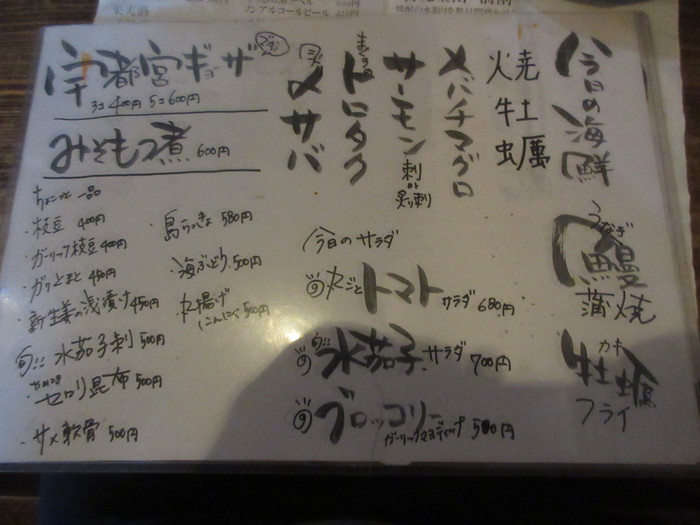 果実酒
ノンアルコールビール
今日の海鮮
うなぎ
鰻
蒲焼
カキ
牡蠣
フライ
焼
牡
蠣
メバチマグロ
サーモン
刺
or
炙り刺
トロタク
〆サバ
宇都宮ギョーザ
3コ 400円 5コ 600円
みそもつ煮 600円
ちょこっと一品
・枝豆 400円
・ガーリック枝豆 400円
・ガリとまと 450円
・新生姜の浅漬け 450円
旬!! 水茄子刺 500円
・セロリ昆布 500円
・サメ軟骨 500円
・島らっきょ 580円
・海ぶどう 500円
・丸揚げ
にんにく 500円
今日のサラダ
丸ごとトマト サラダ 680円
旬!! 水茄子 サラダ 700円
ブロッコリー